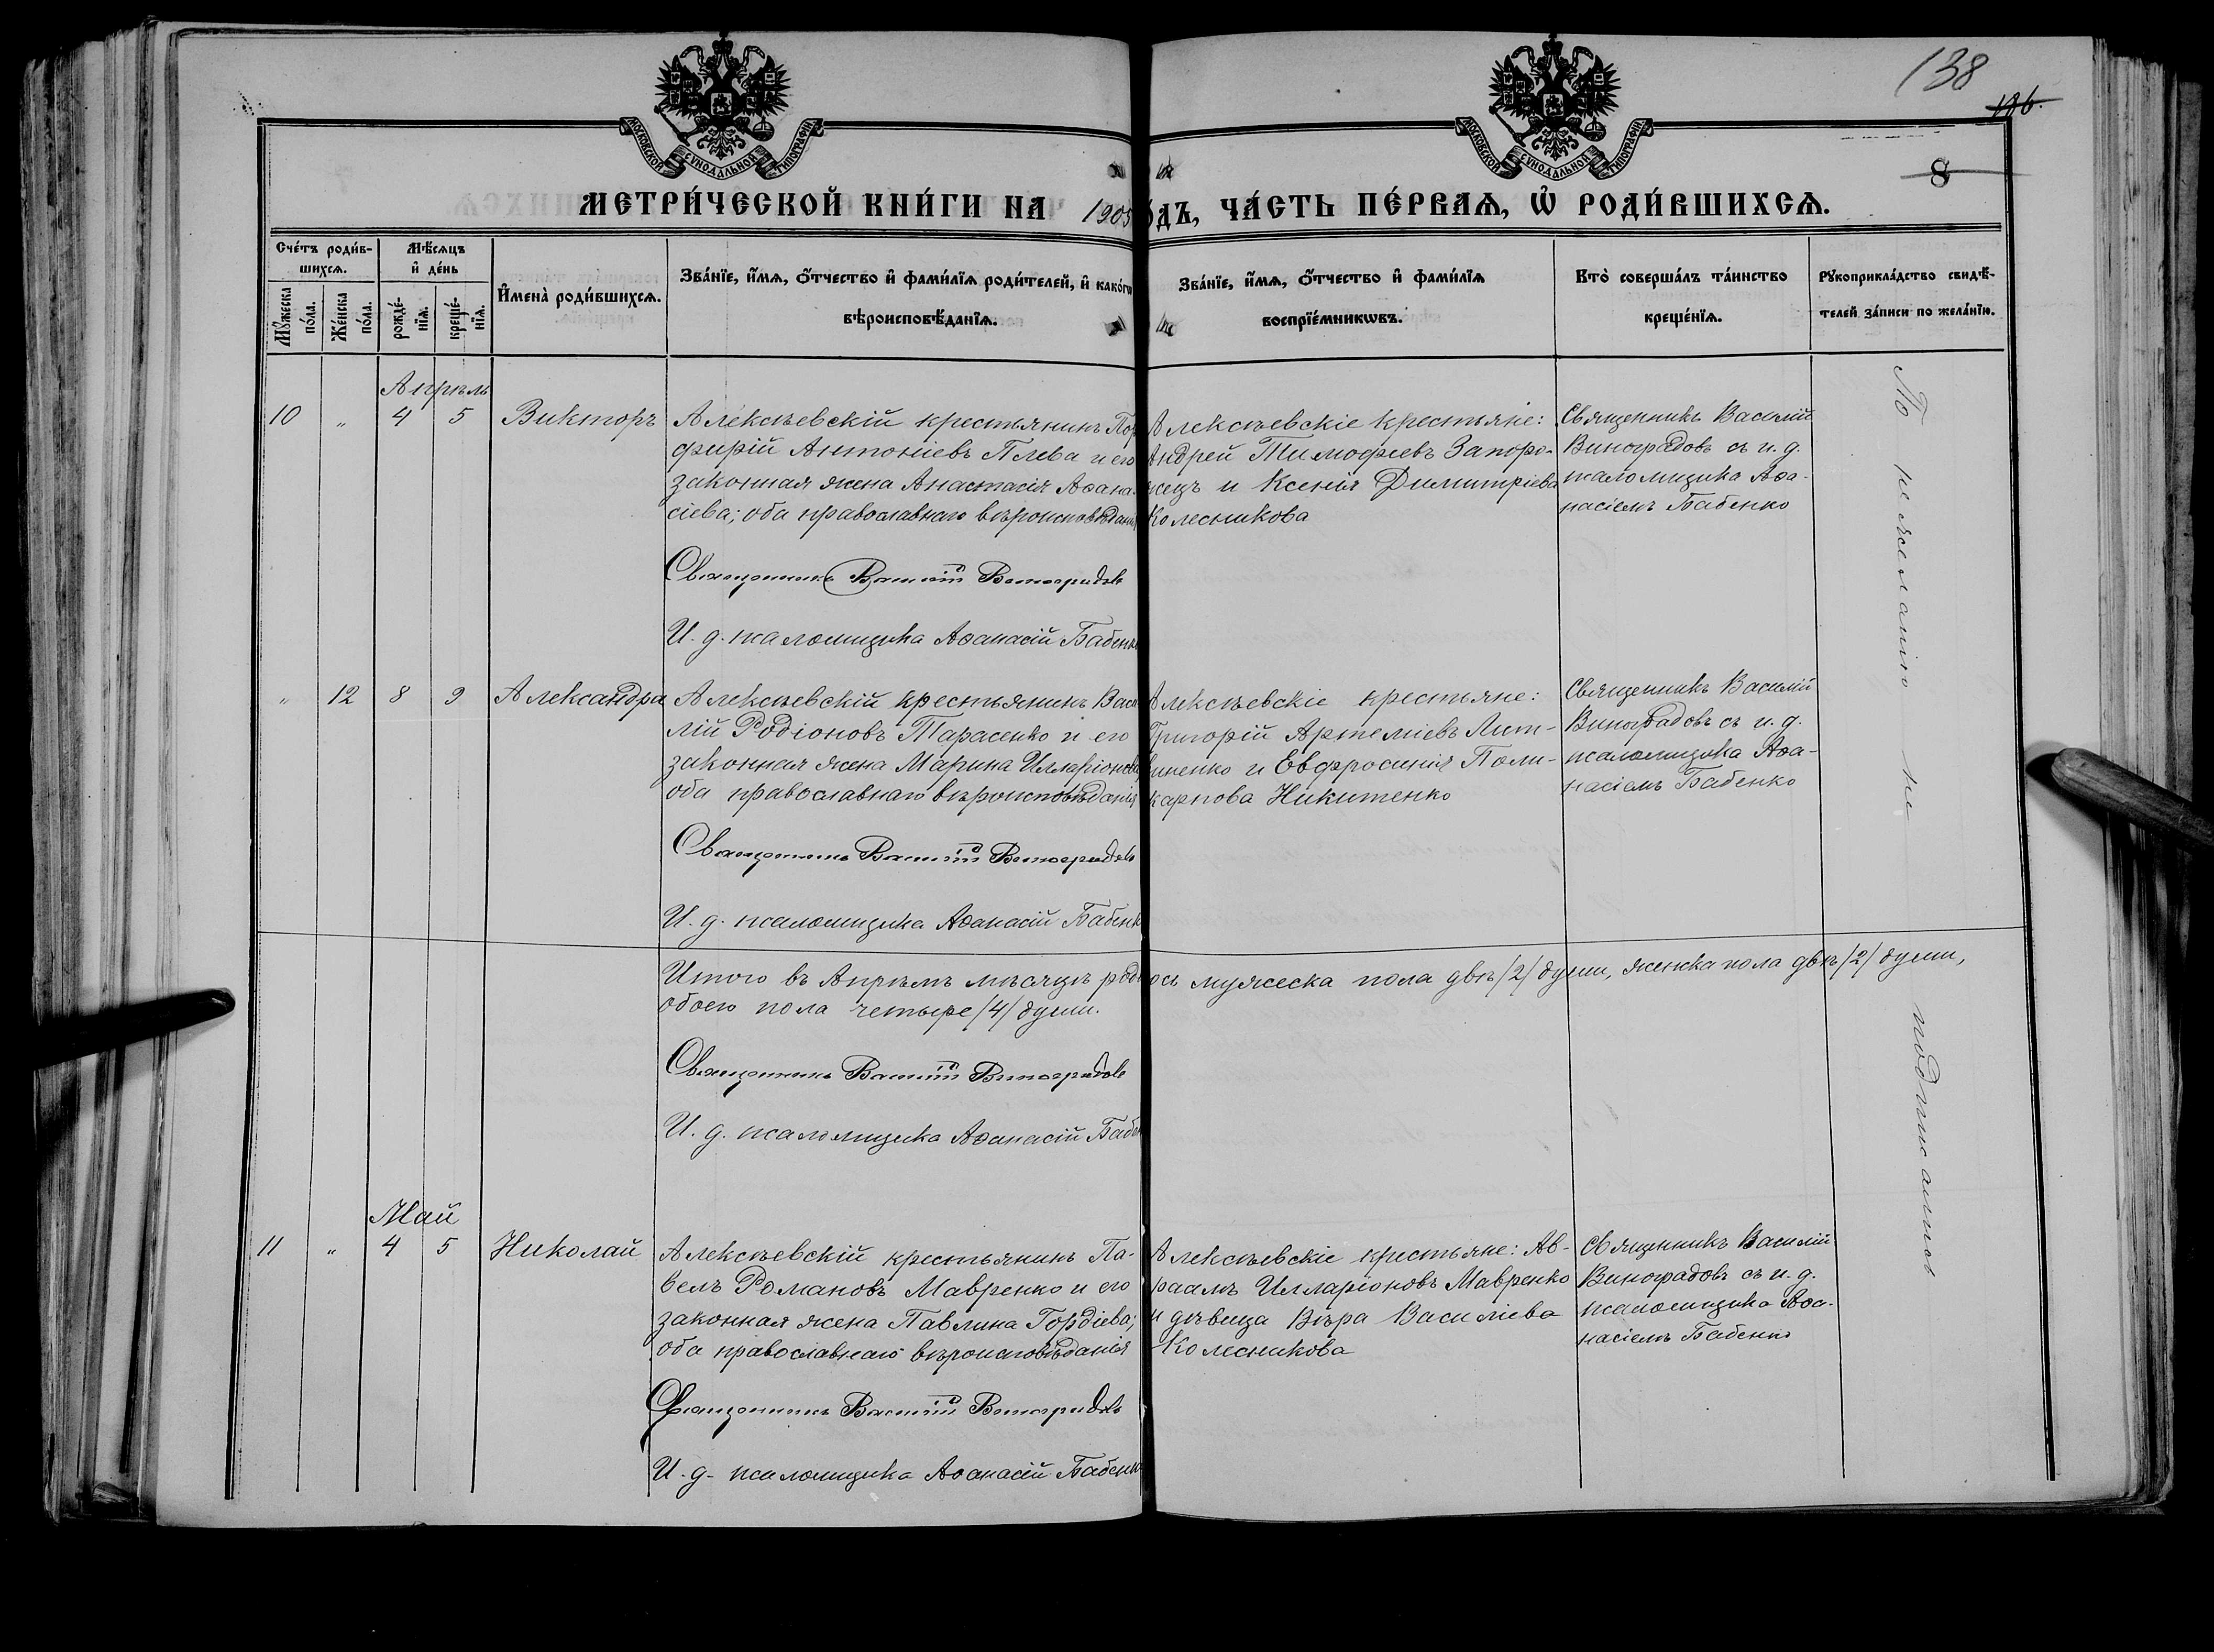 138
186.
МОСКОВСКОЙ СѴНОДАЛЬНОЙ ТИПОГРАФІИ
МОСКОВСКОЙ СѴНОДАЛЬНОЙ ТИПОГРАФІИ
8
МЕТРИ́ЧЕСКОЙ КНИ́ГИ НА 1905 ѻ́дъ, ЧА́СТЬ ПЕ́РВАѦ, Ѡ҆ РОДИ́ВШИХСѦ.
Сче́тъ роди́в-
шихсѧ.
Мꙋ́жеска по́ла.
Же́нска по́ла.
Мѣ́сѧцъ
и҆ де́нь
рожде́-
нїѧ.
креще́-
нїѧ.
И҆мена̀ роди́вшихсѧ.
Зва́нїе, и҆́мѧ, ѻ҆́тчество и҆ фами́лїѧ роди́телей, и҆ како́гѡ
вѣроисповѣ́данїѧ.
Зва́нїе, и҆́мѧ, ѻ҆́тчество и҆ фами́лїѧ
воспрїе́мникѡвъ.
Кто̀ соверша́лъ та́инство
креще́нїѧ.
Рꙋкоприкла́дство свидѣ́-
телей за́писи по жела́нїю.
Апрѣль
10 " 4 5 Викторъ
Алексѣевскій крестьянинъ Пор
фирій Антоніевъ Плева и его
законная жена Анастасія Аѳана-
сіева; оба православнаго вѣроисповѣданія
Священникъ Василій Виноградовъ
И. д. псаломщика Аѳанасій Бабенко
Алексѣевскіе крестьяне:
Андрей Тимофеевъ Запоро-
жецъ и Ксенія Димитріева
Колесникова
Священникъ Василій
Виноградовъ съ и. д.
псаломщика Аѳа-
насіемъ Бабенко
" 12 8 9 Александра
Алексѣевскій крестьянинъ Васи
лій Родіоновъ Тарасенко и его
законная жена Марина Илларіонова
оба православнаго вѣроисповѣданія
Священникъ Василій Виноградовъ
И. д. псаломщика Аѳанасій Бабенк
Алексѣевскіе крестьяне:
Григорій Артеміевъ Лит-
виненко и Евфросинія Поли-
карпова Никитенко
Священникъ Василій
Виноградовъ съ и. д.
псаломщика Аѳа-
насіемъ Бабенко
Итого въ Апрѣлѣ мѣсяцѣ родилось мужеска пола двѣ /2/ души, женска пола двѣ /2/ души,
обоего пола четыре /4/ души.
Священникъ Василій Виноградовъ
И. д. псаломщика Аѳанасій Бабен
Май
11 " 4 5 Николай
Алексѣевскій крестьянинъ Па-
велъ Романовъ Мавренко и его
законная жена Павлина Гордіева;
оба православнаго вѣроисповѣданія
Священникъ Василій Виноградовъ
И. д. псаломщика Аѳанасій Бабенко
Алексѣевскіе крестьяне: Ав-
раамъ Илларіоновъ Мавренко
и дѣвица Вѣра Василіева
Колесникова
Священникъ Василій
Виноградовъ съ и. д.
псаломщика Аѳа-
насіемъ Бабенко
По желанію не